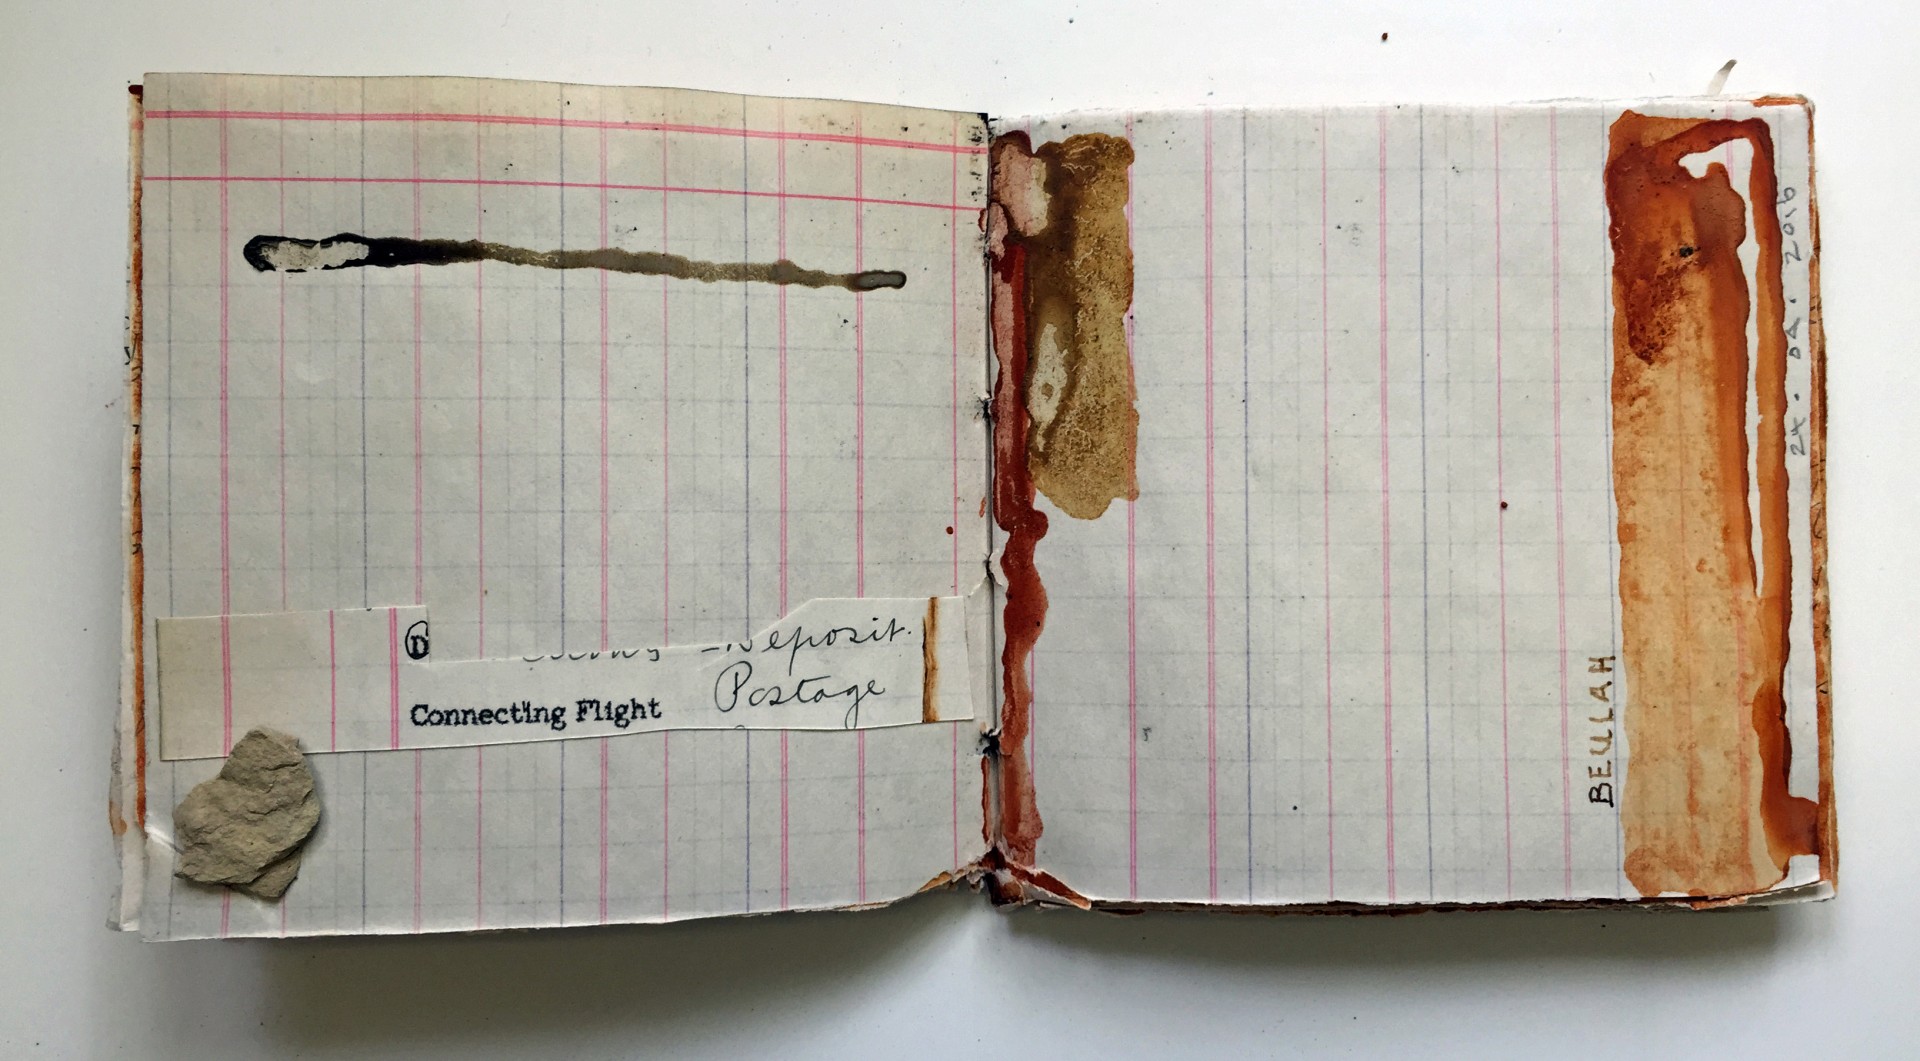 D
Deposit.
Postage
Connecting Flight
BEULAH
24.04.2016